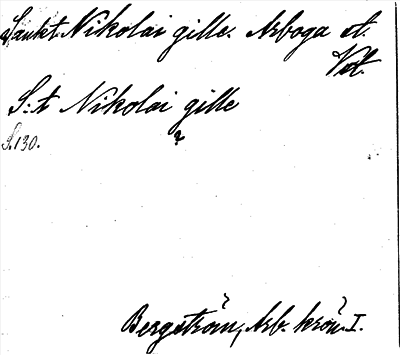 Sankt Nikolai gille. Arboga st.
Vstl.
S:t Nikolai gille
S. 130.
?
Bergström, Arb. krön. I.